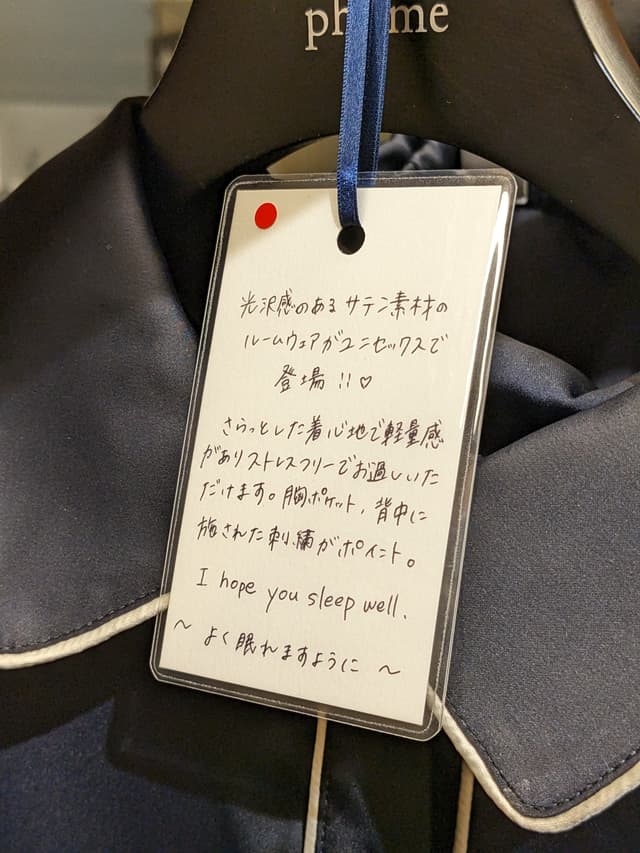 光沢感のあるサテン素材の
ルームウェアがユニセックスで
登場!!♡
さらっとした着心地で軽量感
がありストレスフリーでお過しいた
だけます。胸ポケット、背中に
施された刺繍がポイント。
I hope you sleep well.
~ よく眠れますように ~